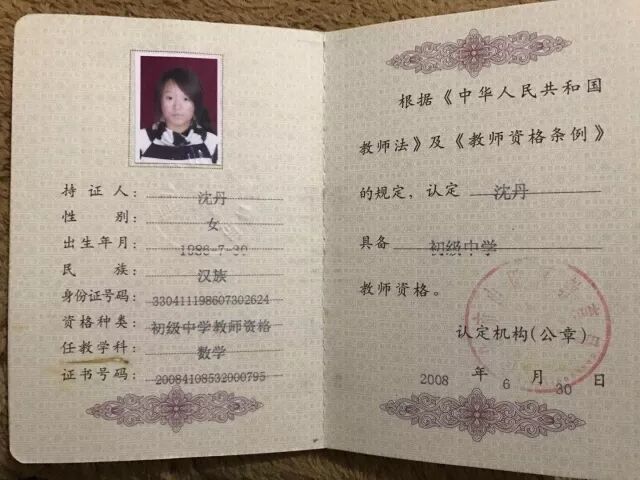 持证人：沈丹
性别：女
出生年月：1986-7-30
民族：汉族
身份证号码：330411198607302624
资格种类：初级中学教师资格
任教学科：数学
证书号码：20084108532000795
根据《中华人民共和国
教师法》及《教师资格条例》
的规定，认定 沈丹
具备 初级中学
教师资格。
认定机构(公章)
2008 年 6 月 30 日